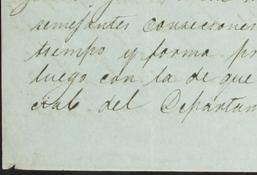 semejantes consecciones
tiempo y forma pr
luego con la de que
cial del Departam